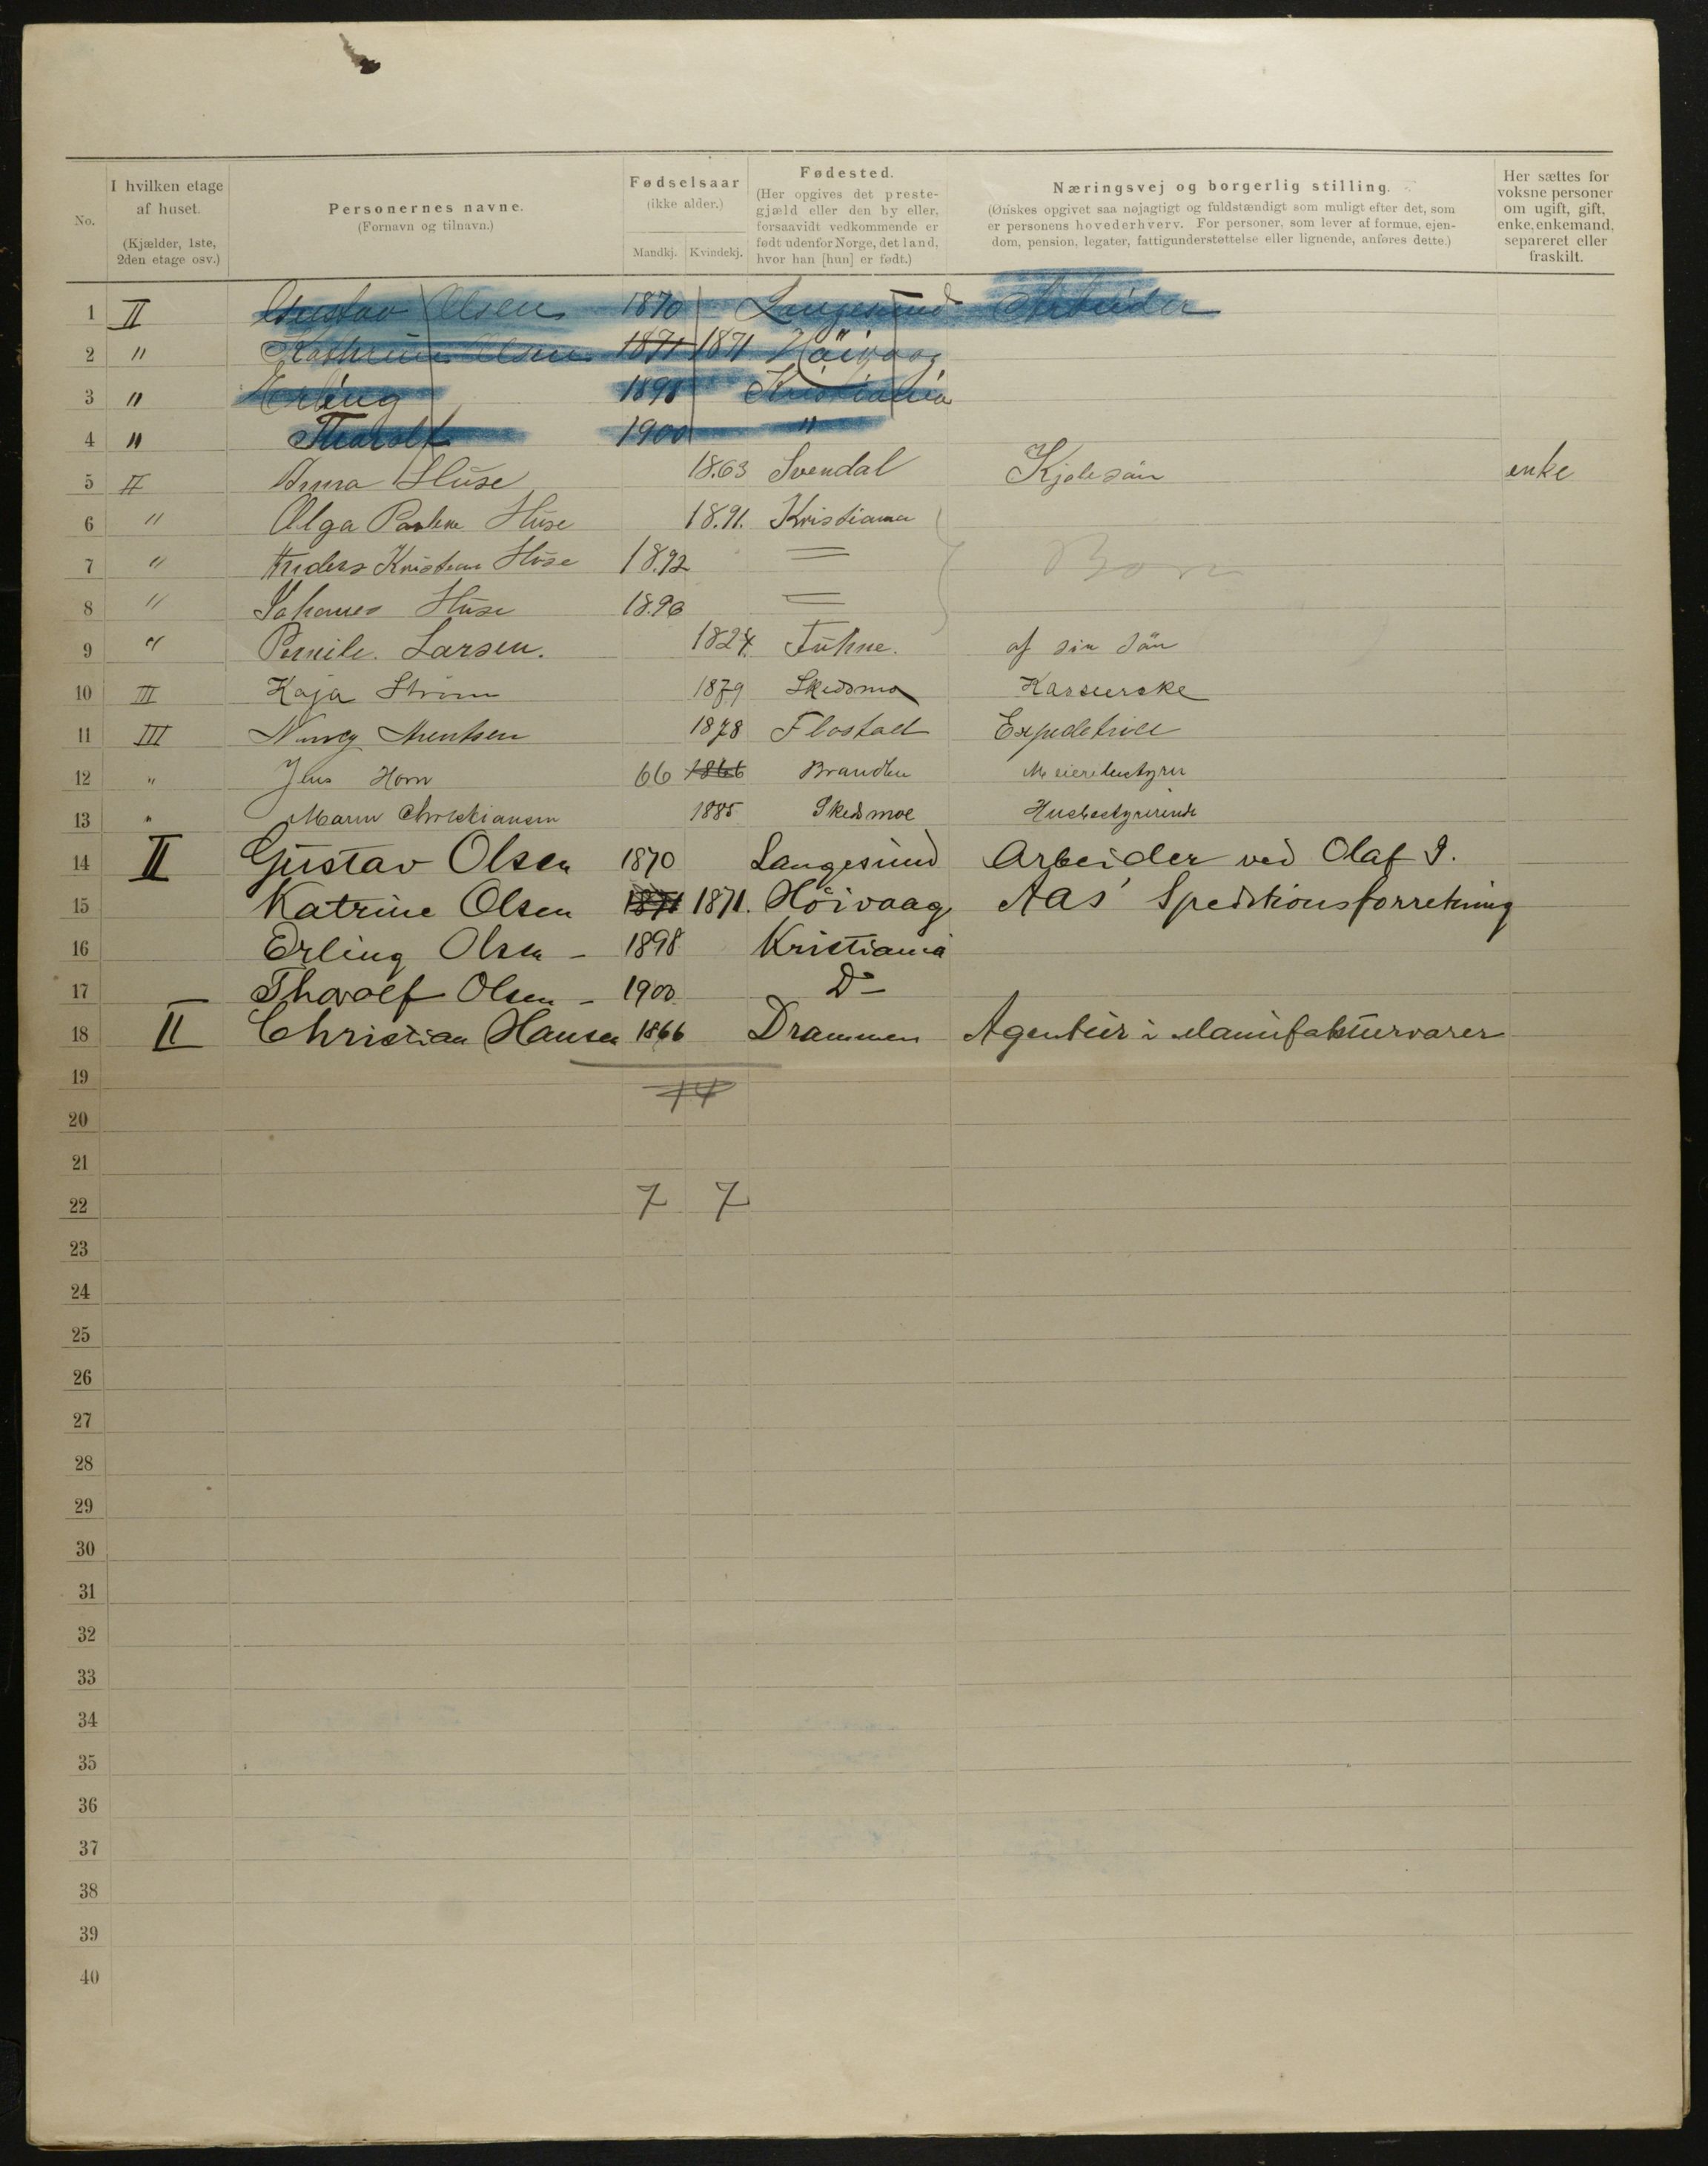 No. I hvilken etage af huset. (Kjælder, 1ste, 2den etage osv.) Personernes navne. (Fornavn og tilnavn.) Fødselsaar (ikke alder.) Mandkj. Kvindekj. Fødested. (Her opgives det prestegjæld eller den by eller, forsaavidt vedkommende er født udenfor Norge, det land, hvor han [hun] er født.) Næringsvej og borgerlig stilling. (Ønskes opgivet saa nøjagtigt og fuldstændigt som muligt efter det, som er personens hovederhverv. For personer, som lever af formue, ejendom, pension, legater, fattigunderstøttelse eller lignende, anføres dette.) Her sættes for voksne personer om ugift, gift, enke, enkemand, separeret eller fraskilt.
1 II Gustav Olsen 1870 Langesund Arbeider
2 " Kathrine Olsen 1871 1871 Höivaag
3 " Erling 1898 Kristiania
4 " Tharolf 1900 "
5 II Anna Huse 1863 Svendal Kjolesöm enke
6 " Olga Huse 1891. Kristiania
7 " Anders Kristian Huse 1892 =
8 " Johanes Huse 1896 = Born
9 " Pernile. Larsen. 1824. af sin Sän
10 III Kaja Strøm 1879 Skedsmo
11 III 1878 Flostad Expeditrice
12 " Jens Horn 66 1866 Brandbu Meieribestyrer
13 " Maren Christiansen 1885 Skedsmoe Husbestyrerinde
14 II Gustav Olsen 1870 Langesund Arbeider ved Olaf I.
15 Katrine Olsen 1871 1871. Höivaag Aas' Speditionsforretning
16 Erling Olsen - 1898 Kristiania
17 Thorolf Olsen - 1900 Do
18 II Christian Hansen 1866 Drammen Agentür i Manufakturvarer
19
14
20
21
22 7 7
23
24
25
26
27
28
29
30
31
32
33
34
35
36
37
38
39
40